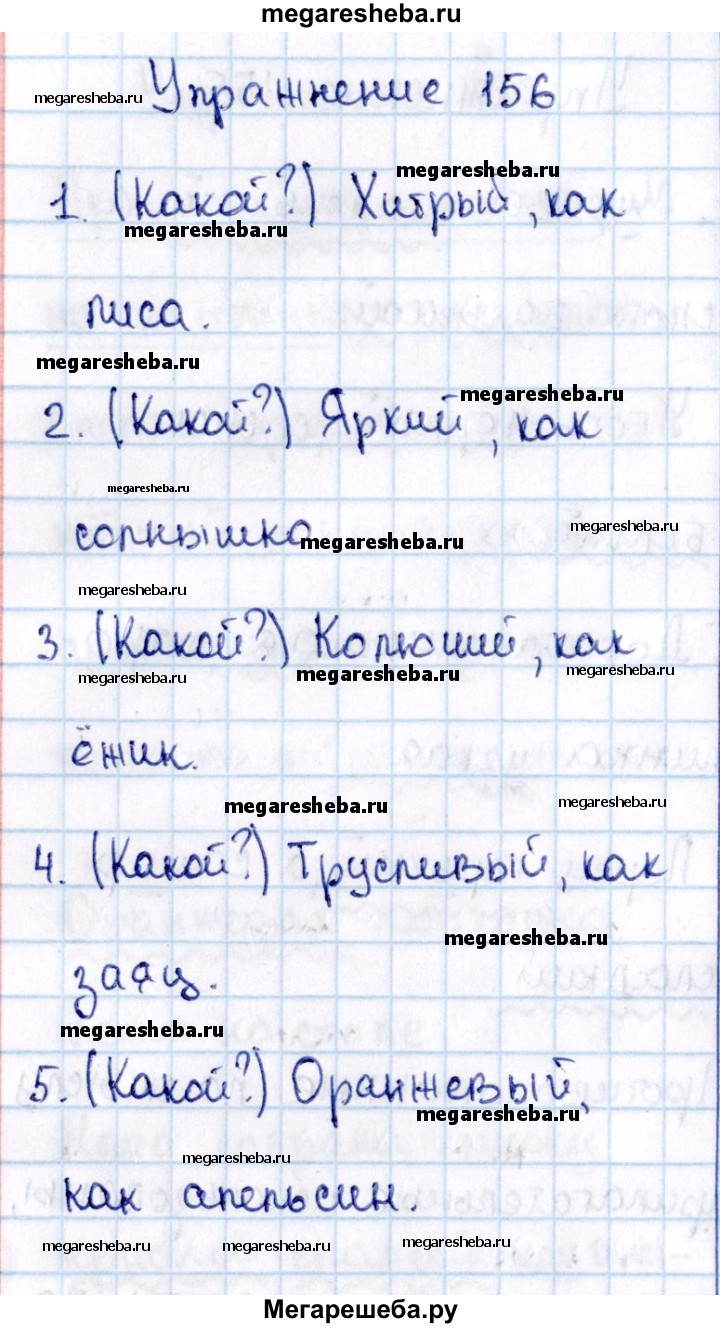 megaresheba.ru
megaresheba.ru Упражнение 156
megaresheba.ru
1. (Какой?) Хитрый, как
megaresheba.ru
лиса.
megaresheba.ru
megaresheba.ru
2. (Какой?) Яркий, как
megaresheba.ru
солнышко megaresheba.ru megaresheba.ru
megaresheba.ru
3. (Какой?) Колючий, как
megaresheba.ru megaresheba.ru megaresheba.ru
ёжик.
megaresheba.ru megaresheba.ru
4. (Какой?) Трусливый, как
megaresheba.ru
заяц.
megaresheba.ru
5. (Какой?) Оранжевый,
megaresheba.ru
megaresheba.ru
как апельсин.
megaresheba.ru megaresheba.ru megaresheba.ru
Мегарешеба.ру